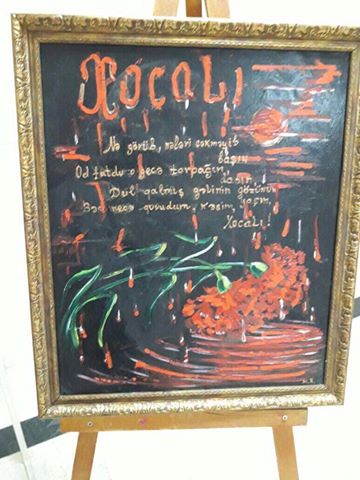 XOCALI
Nə görüb, nələri çəkməyib
başın,
Od tutdu o gecə torpağın,
daşın,
Dul qalmış gəlinin gözünün
Bəs necə qurudum, kəsim, yaşın,
Xocalı!